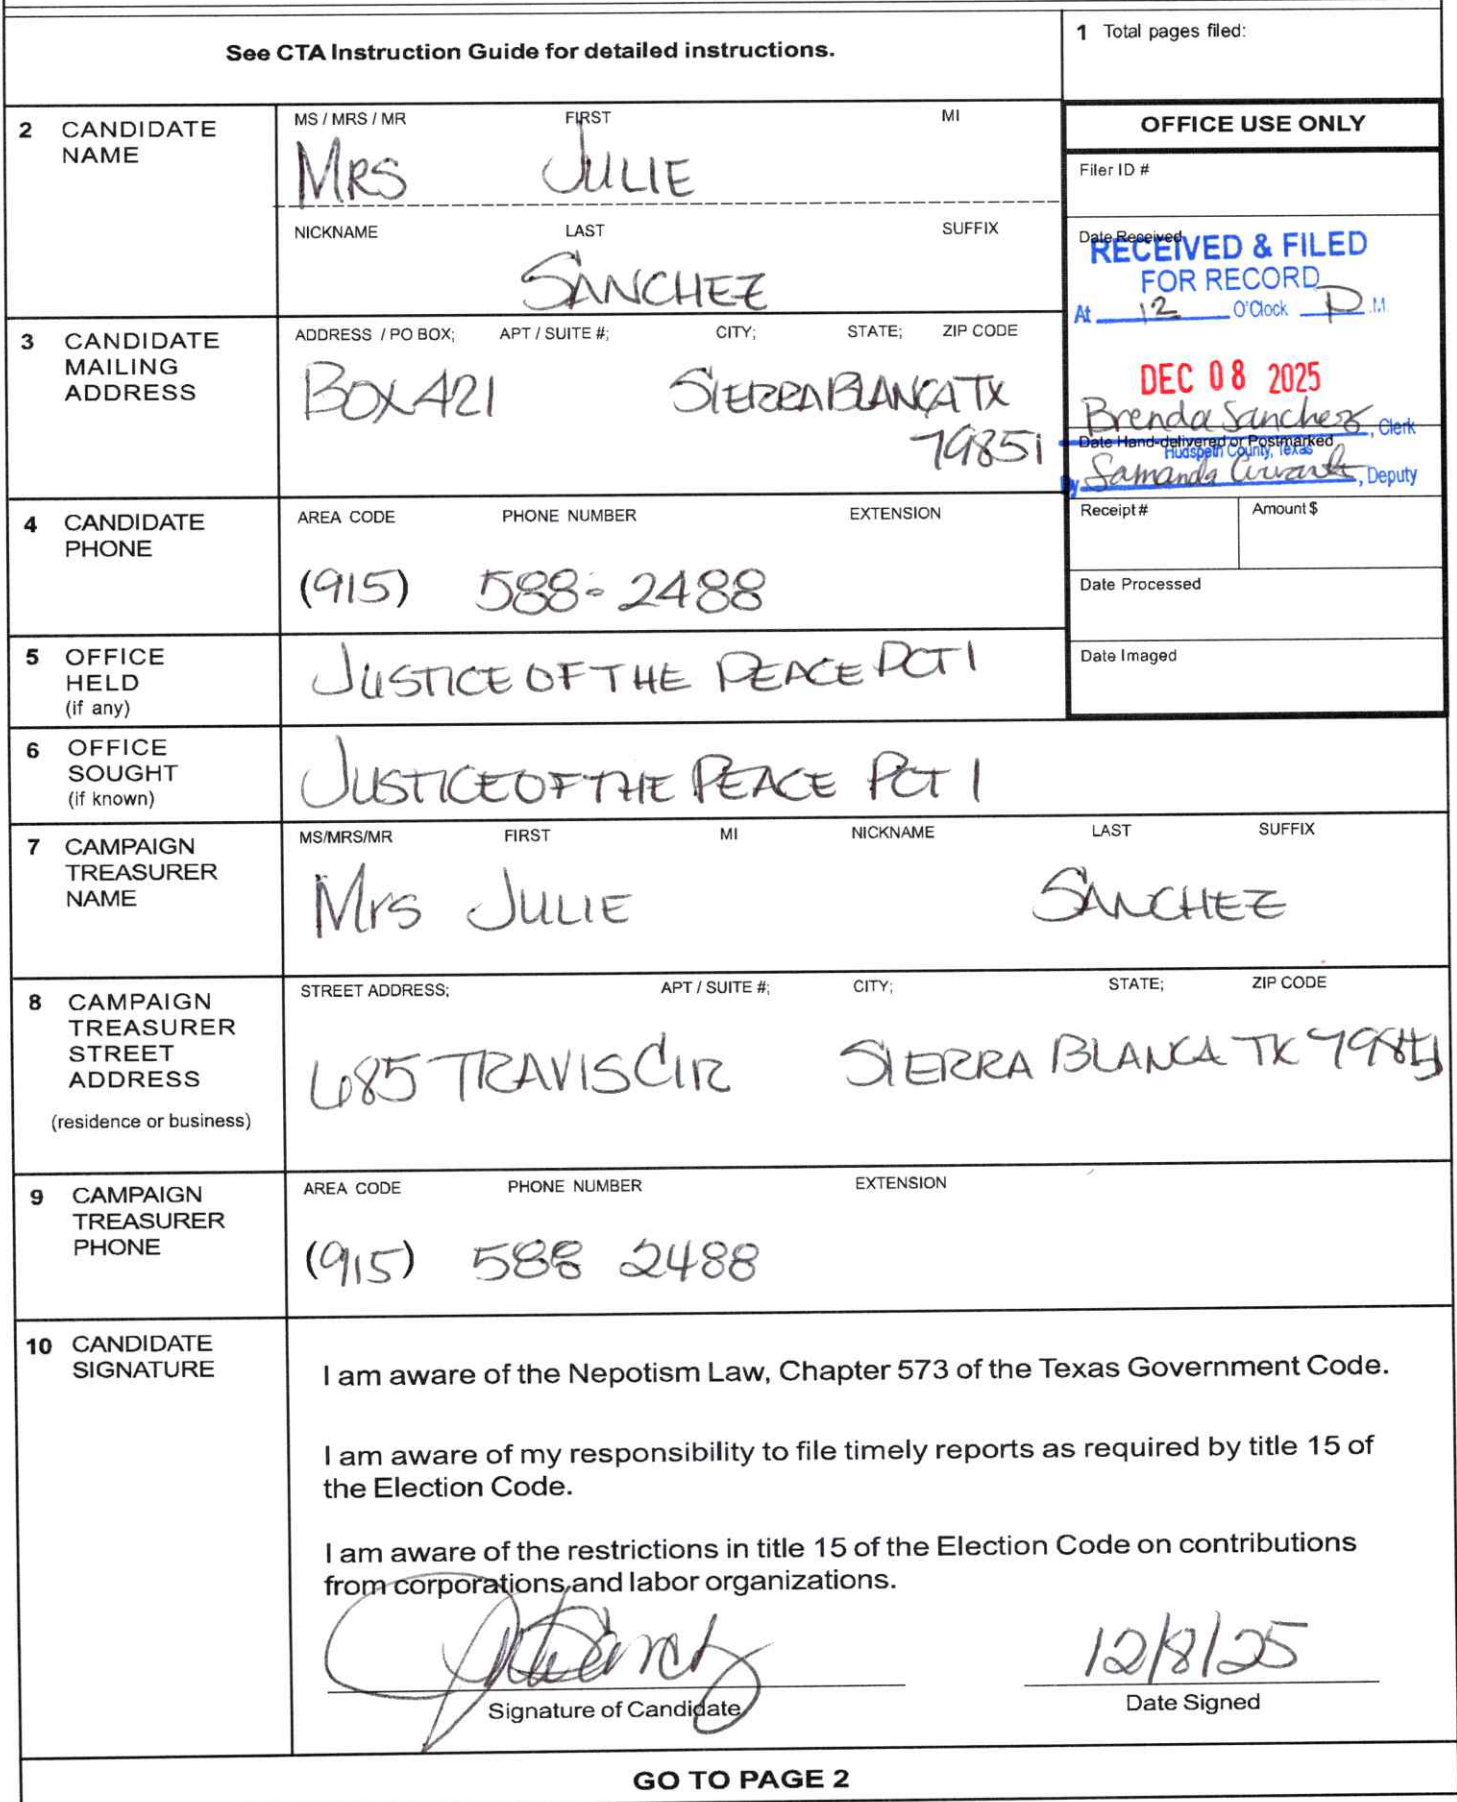 See CTA Instruction Guide for detailed instructions.
1 Total pages filed:
2 CANDIDATE NAME
MS / MRS / MR FIRST MI
MRS JULIE
NICKNAME LAST SUFFIX
SANCHEZ
OFFICE USE ONLY
Filer ID #
Date Received
RECEIVED & FILED
FOR RECORD
At 12 O'Clock P.M.
DEC 08 2025
Brenda Sanchez, Clerk
Date Hand-delivered or Postmarked
Hudspeth County, Texas
By Samanda, Deputy
Receipt # Amount $
Date Processed
Date Imaged
3 CANDIDATE MAILING ADDRESS
ADDRESS / PO BOX; APT / SUITE #; CITY; STATE; ZIP CODE
BOX 421 SIERRA BLANCA TX
79851
4 CANDIDATE PHONE
AREA CODE PHONE NUMBER EXTENSION
(915) 588-2488
5 OFFICE HELD (if any)
JUSTICE OF THE PEACE PCT 1
6 OFFICE SOUGHT (if known)
JUSTICE OF THE PEACE PCT 1
7 CAMPAIGN TREASURER NAME
MS/MRS/MR FIRST MI NICKNAME LAST SUFFIX
Mrs JULIE SANCHEZ
8 CAMPAIGN TREASURER STREET ADDRESS
(residence or business)
STREET ADDRESS; APT / SUITE #; CITY; STATE; ZIP CODE
685 TRAVIS CIR SIERRA BLANCA TX
9 CAMPAIGN TREASURER PHONE
AREA CODE PHONE NUMBER EXTENSION
(915) 588 2488
10 CANDIDATE SIGNATURE
I am aware of the Nepotism Law, Chapter 573 of the Texas Government Code.
I am aware of my responsibility to file timely reports as required by title 15 of
the Election Code.
I am aware of the restrictions in title 15 of the Election Code on contributions
from corporations and labor organizations.
12/8/25
Signature of Candidate Date Signed
GO TO PAGE 2